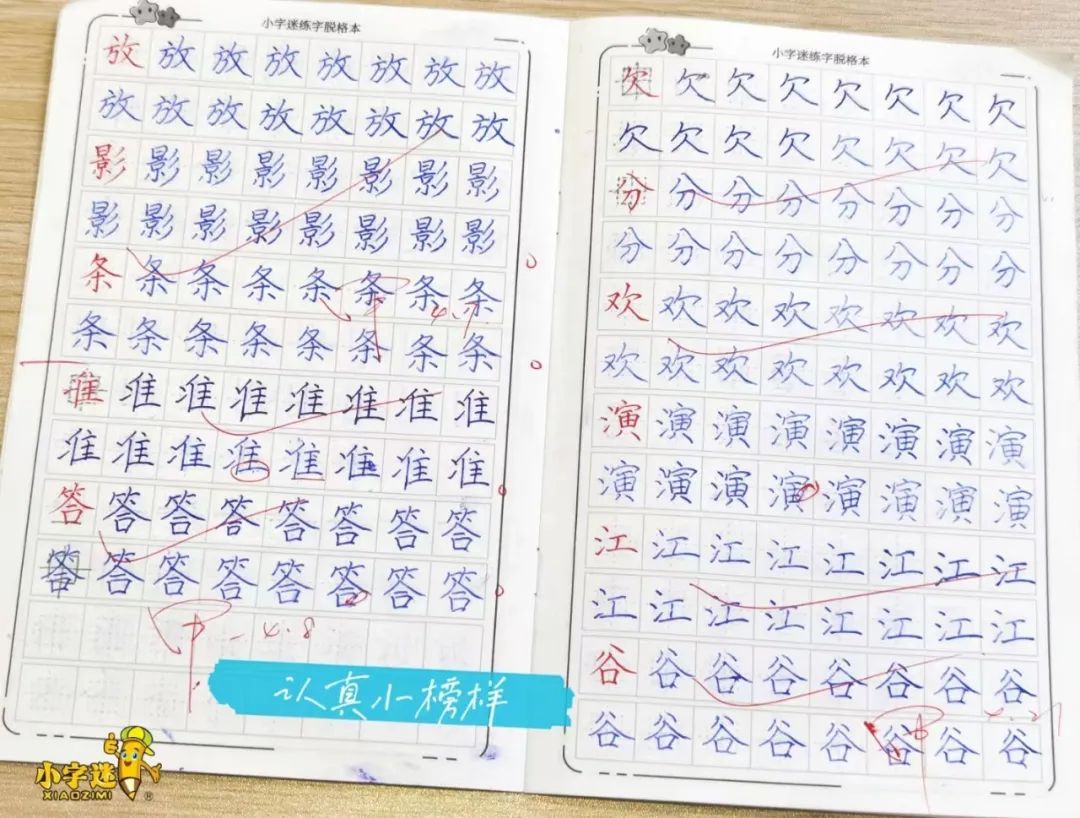 小字迷练字脱格本
放放放放放放放放
放放放放放放放放
影影影影影影影影
影影影影影影影影
条条条条条条条条
4.1
条条条条条条条条
准准准准准准准准
准准准准准准准准
答答答答答答答答
答答答答答答答答
4.8
认真小榜样
小字迷
XIAOZIMI
®
小字迷练字脱格本
欠欠欠欠欠欠欠欠
欠欠欠欠欠欠欠欠
分分分分分分分分
分分分分分分分分
欢欢欢欢欢欢欢欢
欢欢欢欢欢欢欢欢
演演演演演演演演
演演演演演演演演
江江江江江江江江
江江江江江江江江
谷谷谷谷谷谷谷谷
谷谷谷谷谷谷谷谷